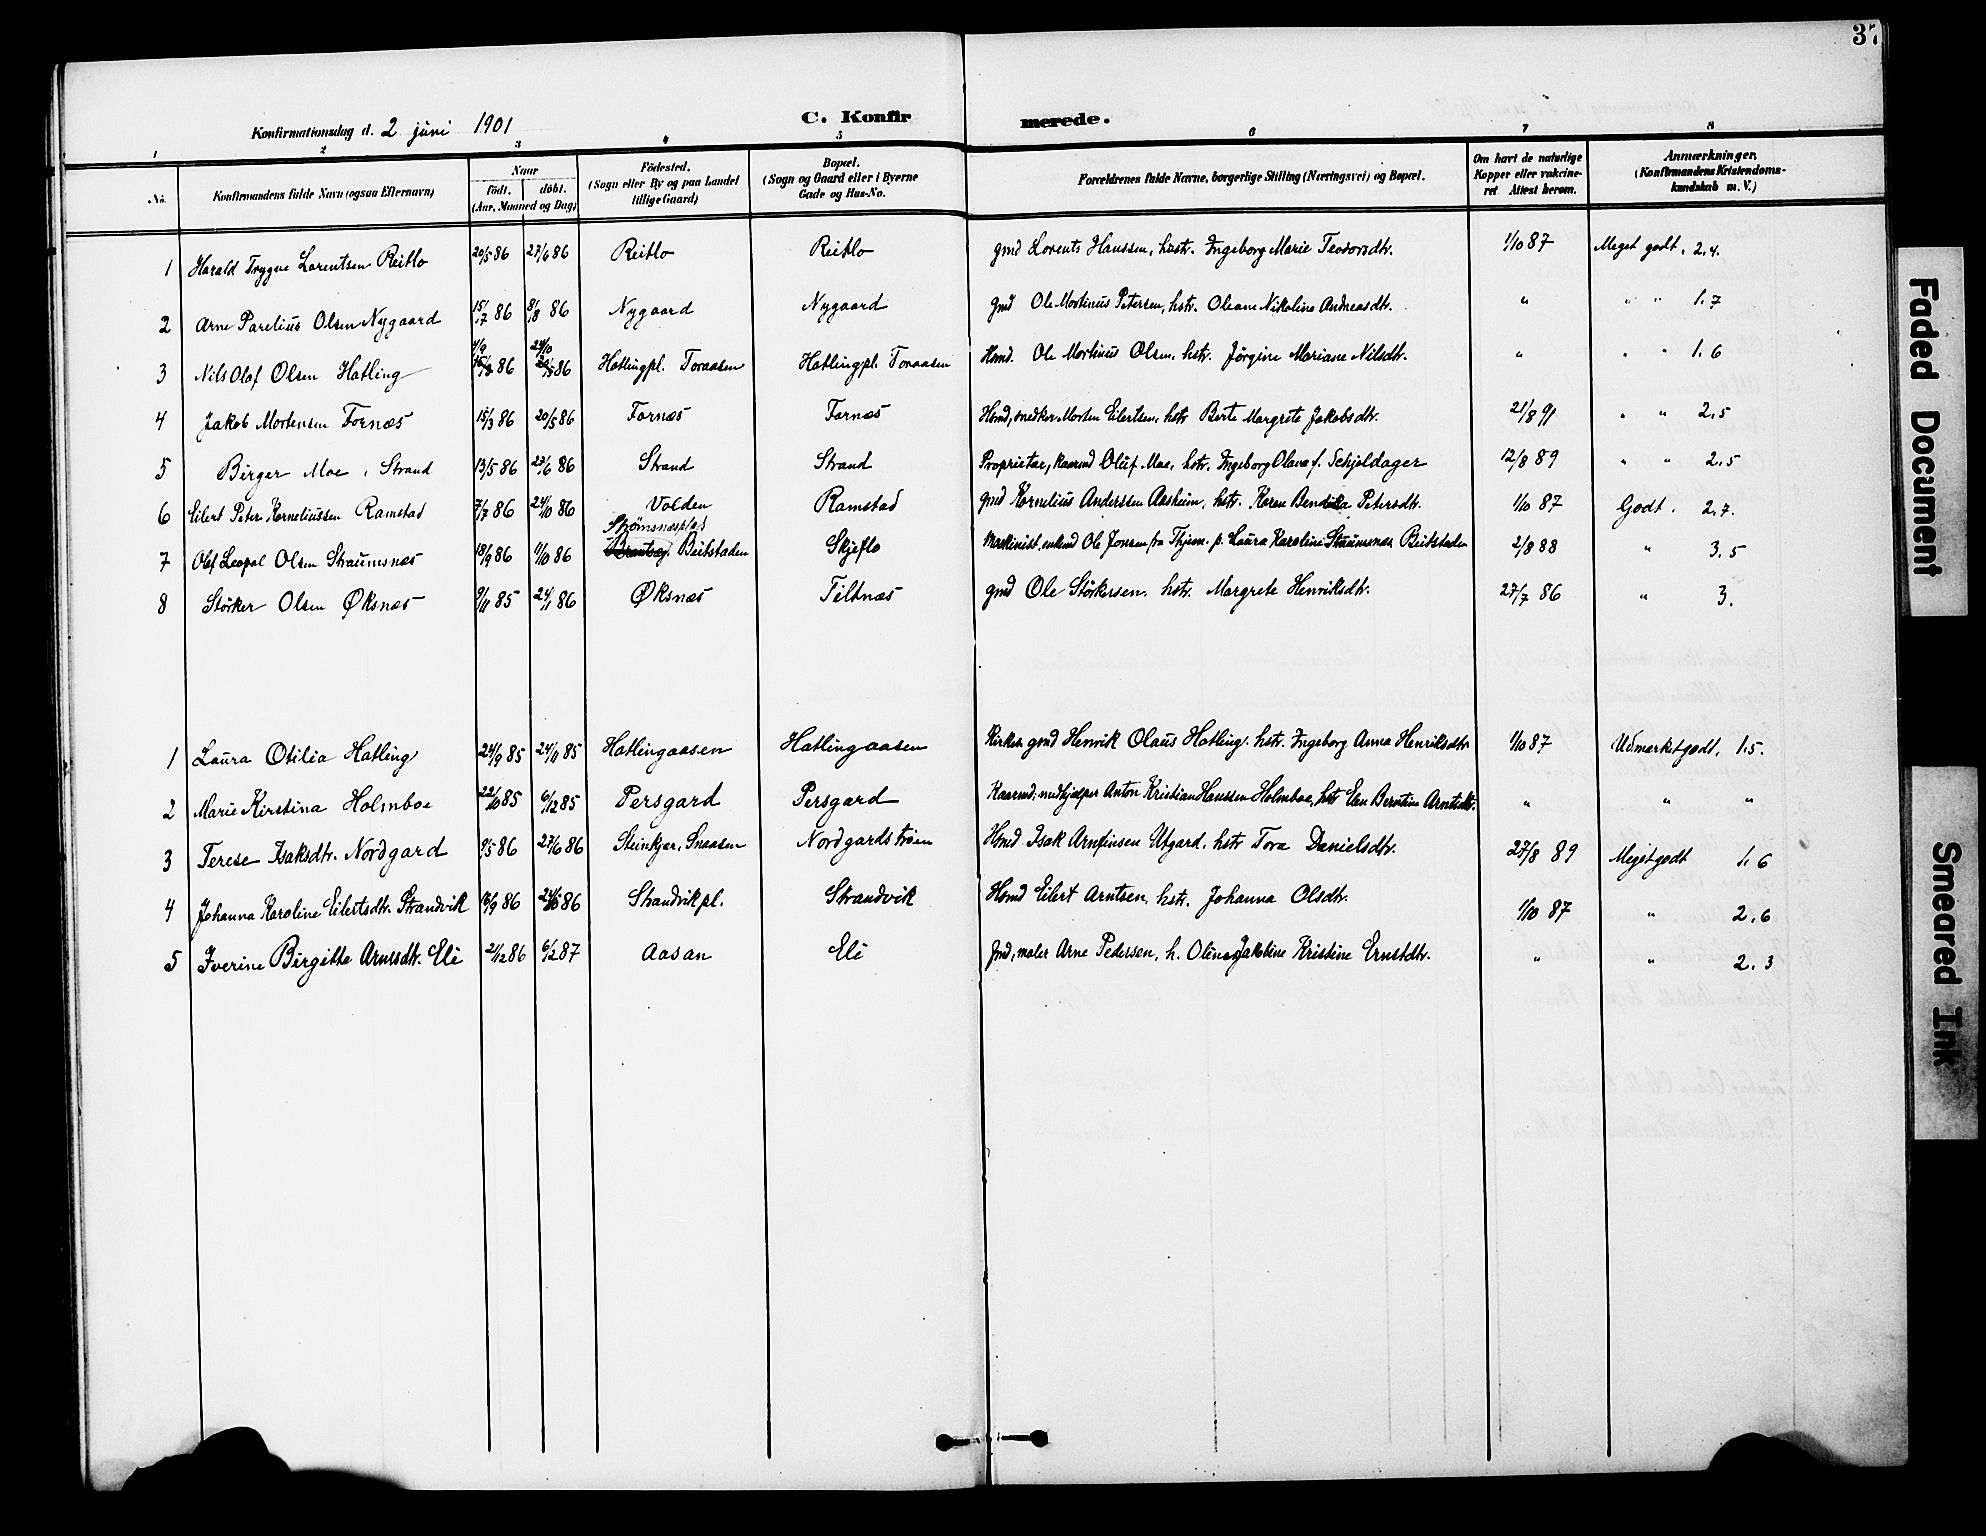 37
Konfirmationsdag d. 2 juni 1901
C. Konfirmerede.
1 2 3 4 5 6 7 8
No. Konfirmandens fulde Navn (ogsaa Efternavn) Naar født. døbt. (Aar, Maaned og Dag) Fødested. (Sogn eller By og paa Landet tillige Gaard) Bopæl. (Sogn og Gaard eller i Byerne Gade og Hus-No. Forældrenes fulde Navne, borgerlige Stilling (Næringsvei) og Bopæl. Om havt de naturlige Kopper eller vakcineret Attest herom. Anmærkninger. (Konfirmandens Kristendomskundskab m. V.)
1 Harald Trygve Lorentsen Reitlo 20/5 86 27/6 86 Reitlo Reitlo gmd Lorents Hanssen, hustr. Ingeborg Marie Teodorsdtr. 1/10 87 Meget godt. 2.4.
2 Arne Parelius Olsen Nygaard 15/7 86 8/8 86 Nygaard Nygaard gmd Ole Mortinus Petersen, hstr. Oleane Nikoline Andreasdtr. " " " 1.7
3 Nils Olaf Olsen Hatling 86 86 Hatlingpl. Toraasen Hatlingpl. Toraasen Hsmd. Ole Mortinus Olsen, hstr. Jørgine Mariane Nilsdtr. " " " 1.6
4 Jakob Mortensen Fornæs 15/3 86 20/5 86 Fornæs Fornæs Hsmd, snedker Morten Eilertsen, hstr Berte Margrete Jakobsdtr. 21/8 91 " " 2.5
5 Birger Moe, Strand 13/5 86 27/6 86 Strand Strand Proprietær, kaarmd Oluf Moe, hstr. Ingeborg Olava f. Schjeldager 12/8 89 " " 2.5
6 Eilert Peter Korneliussen Ramstad 7/7 86 24/10 86 Volden Ramstad gmd Kornelius Anderssen Aasheim, hstr. Karen Bendikta Petersdtr. 1/10 87 Godt. 2.7.
7 Olaf Leopol Olsen Straumsnæs 18/9 86 1/10 86 Strømsnesplads Beitstaden Skjeflo Maskinist, enkmd Ole Jonsen fra Thjem. p. Laura Karoline Straumsnæs Beitstaden 2/8 88 " 3.5
8 Størker Olsen Øksnæs 9/11 85 24/1 86 Øksnæs Tiltnæs gmd Ole Størkersen. hstr. Margrete Henriksdtr. 27/7 86 " 3.
1 Laura Otilia Hatling 24/9 85 24/11 85 Hatlingaasen Hatlingaasen Kirkes. gmd Henrik Olaus Hatling. hstr. Ingeborg Anna Henriksdtr 1/10 87 Udmerket godt. 1.5.
2 Marie Kirstina Holmboe 22/10 85 6/12 85 Persgard Persgard Kaarmd, medhjælper Anton Kristian Hanssen Holmboe, hstr Elen Berntine Arntsdtr. " " "
3 Terese Isaksdtr. Nordgard 9/5 86 27/6 86 Steinkjær, Snaasen Nordgardstrøen Hsmd Isak Arnfinsen Utgard. hstr Tora Danielsdtr. 27/8 89 Meget godt 1.6
4 Johanna Karoline Eilertsdtr. Strandvik 16/9 86 24/10 86 Strandvikpl. Strandvik Hsmd Eilert Arntsen, hstr. Johanna Olsdtr. 1/10 87 " 2.6
5 Iverine Birgitte Arnesdtr. Eli 21/12 86 6/2 87 Aasan Eli gmd, maler Arne Pedersen, h. Olina Jakobine Kristine Ernstdtr. " " 2.3
Faded Document
Smeared Ink